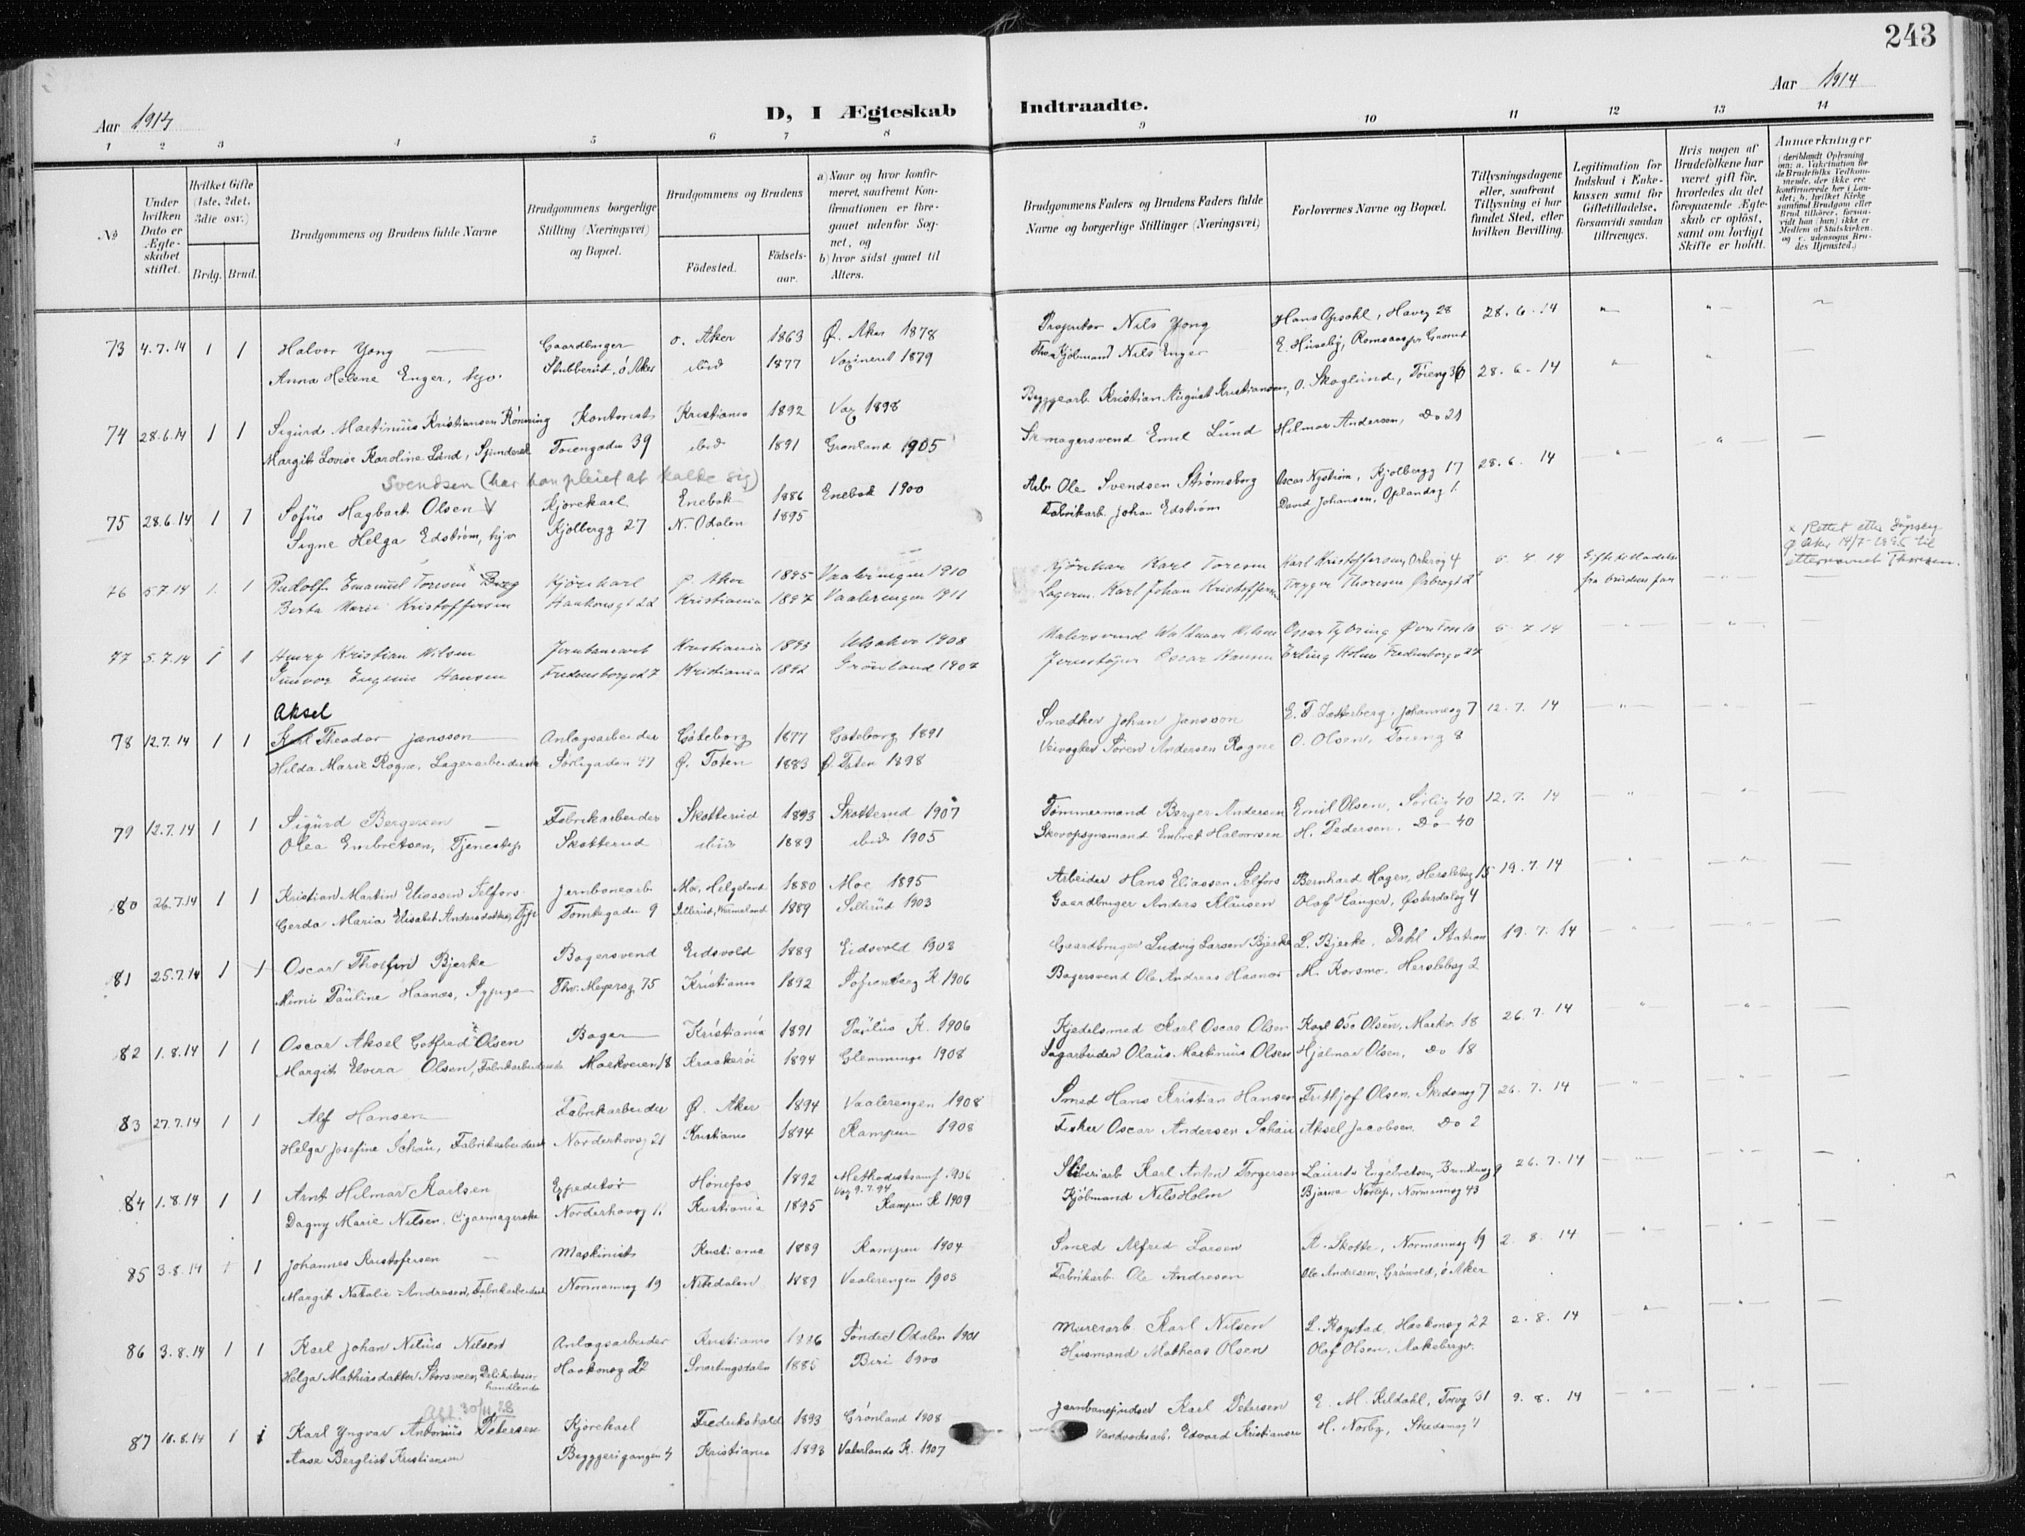 243
Aar 1914
D, I Ægteskab Indtraadte.
Aar 1914
1 2 3 4 5 6 7 8 9 10 11 12 13 14
№
Under hvilken Dato er Ægteskabet stiftet.
Hvilket Gifte (1ste, 2det, 3die osv.)
Brdg. Brud.
Brudgommens og Brudens fulde Navne
Brudgommens borgerlige Stilling (Næringsvei) og Bopæl.
Brudgommens og Brudens
Födested. Födselsaar.
a) Naar og hvor konfirmeret, saafremt Konfirmationen er foregaaet udenfor Sognet, og
b) hvor sidst gaaet til Alters.
Brudgommens Faders og Brudens Faders fulde Navne og borgerlige Stillinger (Næringsvei)
Forlovernes Navne og Bopæl.
Tillysningsdagene eller, saafremt Tillysning ei har fundet Sted, efter hvilken Bevilling.
Legitimation for Indskud i Enkekassen samt for Giftetilladelse, forsaavidt saadan tiltrænges.
Hvis nogen af Brudefolkene har været gift för, hvorledes da det foregaaende Ægteskab er oplöst, samt om lovligt Skifte er holdt.
Anmærkninger
73 4.7.14 1 1 Halvor Yong Gaardbruger ö. Aker 1863 Ø. Aker 1878 Proprietær Nils Yong Hans Opsahl, Haveg 28 28.6.14
Anna Helene Enger, hjv. Stubberud, ö Aker ibid 1877 Vaxineret 1879 Kjöbmand Nils Enger E. Huseby,
74 28.6.14 1 1 Sigurd Martinius Kristiansen Rönning Kontorist Kristiania 1892 Vax 1898 Byggearb. Kristian August Kristiansen, O. Skoglund, Töieng 36 28.6.14
Margit Lovise Karoline Lund, Töiengaden 39 ibid 1891 Grønland 1905 Emil Lund Hilmar Andersen, Do 21
Svendsen (har han pleiet at kalde sig)
75 28.6.14 1 1 Sofus Hagbart Olsen Kjörekarl Enebak 1886 Enebak 1900 Arb. Ole Svendsen Strömsborg Oscar Nyström, Kjölbergg 17 28.6.14
Signe Helga Edström, hjv Kjölbergg 27 N. Odalen 1895 Fabrikarb. Johan Edström David Johansen, Oplandsg 1.
76 5.7.14 1 1 Rudolf Emanuel Toresen Berg Kjörekarl Ø Aker 1895 Vaalerengen 1910 Karl Toresen Karl Kristoffersen, 5.7.14
Berta Marie Kristoffersen Haakonsgt 22 Kristiania 1897 Vaalerengen 1911 Lagerm. Karl Johan Kristoffersen Trygve Thoresen
77 5.7.14 1 1 Henry Kristian Nilsen Jernbanearb Kristiania 1893 1908 Malersvend Waldemar Nilsen 5.7.14
Gunvor Eugenie Hansen Kristiania 1892 Grönland 1907 Oscar Hansen Erling Holm Fredensborgv 27
Aksel
78 12.7.14 1 1 Karl Theodor Jansson Anlægsarbeider Göteborg 1877 Göteborg 1891 Snedker Johan Jansson E. T Zetterberg, Johannesg 7 12.7.14
Hilda Marie Rogne, Lagerarbeiderske Sörligaden 47 Ø. Toten 1883 Ø. Toten 1898 Veivogter Sören Andersen Rogne O. Olsen, Töieng 8
79 12.7.14 1 1 Sigurd Bergersen Fabrikarbeider Skotterud 1893 Skotterud 1907 Tömmermand Berger Andersen Emil Olsen, Sörlig 40 12.7.14
Olea Embretsen, Tjenestep. Skotterud ibid 1889 ibid 1905 Skovopsynsmand Embret Halvorsen H. Pedersen, Do 40
80 26.7.14 1 1 Kristian Martin Eliassen Selfors Jernbanearb Mo, Helgeland 1880 Moe 1895 Arbeider Hans Eliassen Selfors Bernhard Hagen, Herslebsg 15 19.7.14
Gerda Maria Elisabet Andersdatter, Tjp Tomtegaden 9 Sillerud, Wermeland 1889 Sillerud 1903 Gaardbruger Anders Klausen Olaf Hanger, Østerdalsg 4
81 25.7.14 1 1 Oscar Thorfin Bjerke Bagersvend Eidsvold 1889 Eidsvold 1903 Gaardbruger Ludvig Larsen Bjerke L. Bjerke, Dahl Station 19.7.14
Mimi Pauline Haanæs, Sypige Thv. Meyersg 75 Kristiania 1892 Sofienberg K 1906 Bagersvend Ole Andreas Haanæs M. Korsmo, Herslebsg 2
82 1.8.14 1 1 Oscar Aksel Gotfred Olsen Bager Kristiania 1891 Paulus K. 1906 Kjedelsmed Karl Oscar Olsen Karl Osc Olsen, Markv. 18 26.7.14
Margit Elvira Olsen, Fabrikarbeiderske Markveien 18 Kraakerøi 1894 Glemminge 1908 Sagarbeider Olaus Martinius Olsen Hjalmar Olsen, Do 18
83 27.7.14 1 1 Alf Hansen Fabrikarbeider Ø. Aker 1894 Vaalerengen 1908 Smed Hans Kristian Hansen Frithjof Olsen, Skedsmog 7 26.7.14
Helga Josefine Schau, Fabrikarbeiderske Norderhovsg 21 Kristiania 1894 Kampen 1908 Fisker Oscar Andersen Schau Aksel Jacobsen, Do 2
84 1.8.14 1 1 Arnt Hilmar Karlsen Expeditör Hönefos 1892 Methodistsamf. 1906 Sliberiarb Karl Anton Torgersen Laurits Engebretsen, 26.7.14
Vax 9.7.94
Dagny Marie Nilsen, Cigarmagerske Norderhovsg Kristiania 1895 Kampen K 1909 Kjöbmand Nils Holm Bjarne Normannsg 43
85 3.8.14 1 1 Johannes Kristofersen Maskinist Kristiania 1889 Kampen 1904 Smed Alfred Larsen A. Skotte, Normannsg 19 2.8.14
Margit Natalie Andresen, Fabrikarbeiderske Normannsg 19 Nitedalen 1889 Vaalerengen 1903 Fabrikarb. Ole Andresen Ole Andresen, Grönvold, ö Aker
86 3.8.14 1 1 Karl Johan Nilius Nilsen Anlægsarbeider Kristiania 1886 Söndre Odalen 1901 Murerarb Karl Nilsen L. Rogstad, Haakonsg 22 2.8.14
Helga Mathiasdatter Storsveen, Delikatessehandlende Haakonsg 22 Snertingdalen Biri 1900 Husmand Mathias Olsen Olaf Olsen, Makebergv.
30/11 28
87 1 1 Karl Yngvar Antonius Petersen Kjörekarl Fredrikshald 1893 Grönland 1908 Karl Petersen E. M. Kildahl, Torvg 31 9.8.14
Aase Bergliot Kristiansen Byggerigangen Kristiania 1893 Vaterlands K. 1907 Vandværksarb. Edvard Kristiansen H. Norby, Skedsmog